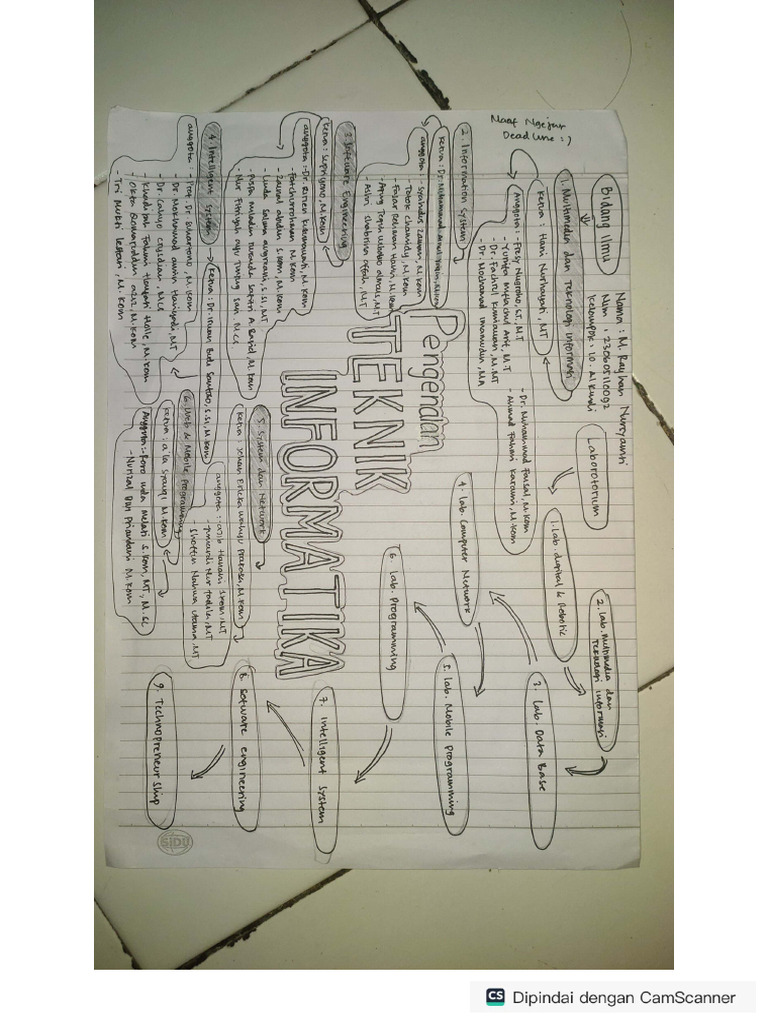 Maaf Ngejar
Deadline :)
Nama : M. Rayhan Nursyamsi
Nim : 230605110092
Kelompok : 10. Al Kindi
Bidang Ilmu
1. Multimedia dan Teknologi Informasi
Ketua : Hani Nurhayati, MT
Anggota : Fresy Nugroho, ST, MT
- Yunifa Miftachul Arif, M.T
- Dr. Fachrul Kurniawan, M.MT
- Dr. Mochamad Imamudin, MA
- Dr. Muhammad Faisal, M.Kom
- Ahmad Fahmi Karami, M.Kom
2. Information System
Ketua : Dr. Muhammad Ainul Yaqin, M.Kom
anggota : Syahiduz Zaman, M.Kom
- Totok Chamidy, M.Kom
- Fajar Rohman Hariri, M.Kom
- Agung Teguh Wibowo Almais, MT
- Ashri Shabrina Afrah, MT
3. Software Engineering
Ketua : Supriyono, M.Kom
anggota : Dr. Ririen Kusumawati, M.Kom
- Fatchurrohman M.Kom
- Zainal Abidin S.Kom, M.Kom
- Linda Salma Angreani, S.Si, MT
- Nur Fitriyah Ayu Tunjung Sari, M.Cs
4. Intelligent System
Ketua : Dr. Irwan Budi Santoso, S.Si, M.Kom
anggota : - Prof. Dr. Suhartono, M.Kom
- Dr. Mokhamad Amin Hariyadi, MT
- Dr. Cahyo Crysdian, M.Cs
- Khadijah Fahmi Hayati Holle, M.Kom
- Okta Qomaruddin Aziz, M.Kom
- Tri Mukti Lestari, M.Kom
Pengenalan
TEKNIK
INFORMATIKA
5. System dan Network
Ketua : Johan Ericka Wahyu Prakasa, M.Kom
anggota : - Ajib Hanani S.Kom, MT
- Juniardi Nur Fadila, MT
- Shoffin Nahwa Utama, MT
6. Web & Mobile Programming
Ketua : A'la Syauqi M.Kom
Anggota : - Roro Inda Melati S.Kom, MT, M.Sc
- Nurizal Dwi Priandani M.Kom
Laboratorium
1. Lab. digital & Robotic
2. Lab. Multimedia dan
Teknologi Informasi
3. Lab. Data Base
4. Lab. Computer Network
5. Lab. Mobile Programming
6. Lab. Programming
7. Intelligent System
8. Software engineering
9. Technopreneurship
SIDU
CS Dipindai dengan CamScanner